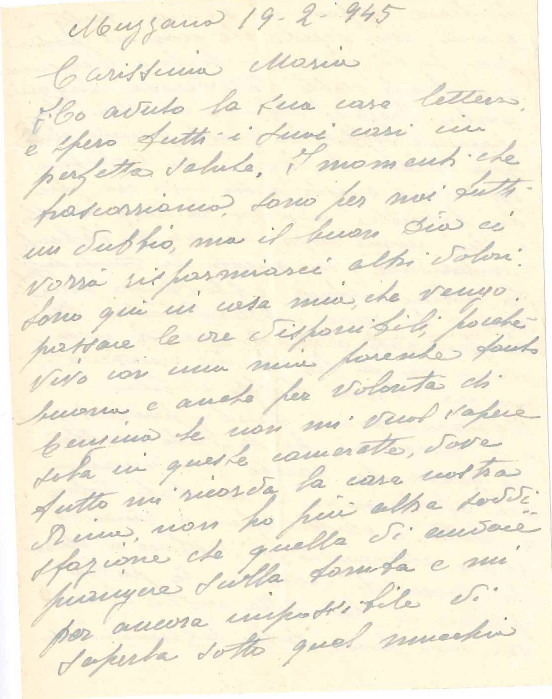 Muzzana 19-2-945
Carissima Maria
Ho avuto la sua cara lettera,
e spero tutti i suoi cari in
perfetta salute. I momenti che
trascorriamo, sono per noi tutti
un dubbio, ma il buon Dio ci
vorrà risparmiarci altri dolori.
Sono qui in casa mia, che vengo
passare le ore disponibili, poichè
vivo con una mia parente tanto
buona e anche per volontà di
che non mi vuol sapere
sola in queste camerette, dove
tutto mi ricorda la cara nostra
non ho più altra soddi
sfazione che quella di andare
piangere sulla tomba e mi
par ancora impossibile di
saperla sotto quel mucchio